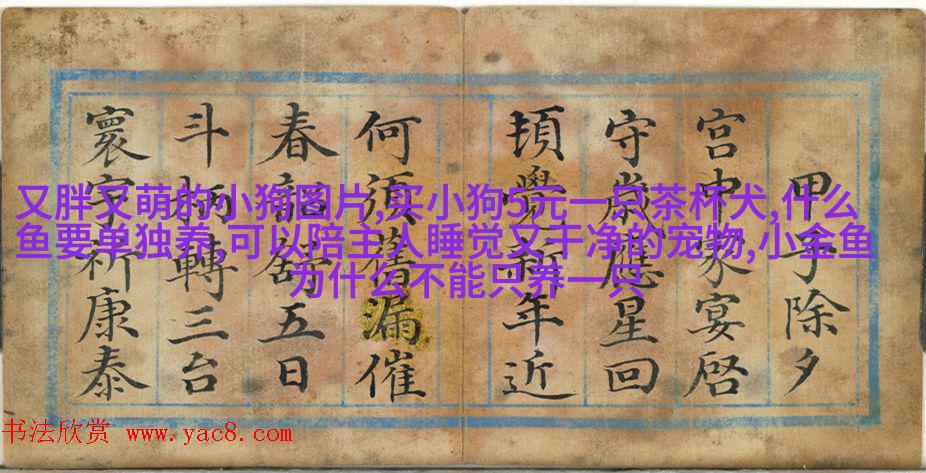 甲子除夕
宮中家宴啓
守歲應星回
頓覺新年近
何須漏催
春五日
斗柄轉三台
寰宇祈康泰
又胖又萌的小狗图片,买小狗5元一只茶杯犬,什么
鱼要单独养,可以陪主人睡觉又干净的宠物,小金鱼
为什么不能只养一只
书法欣赏 www.yac8.com